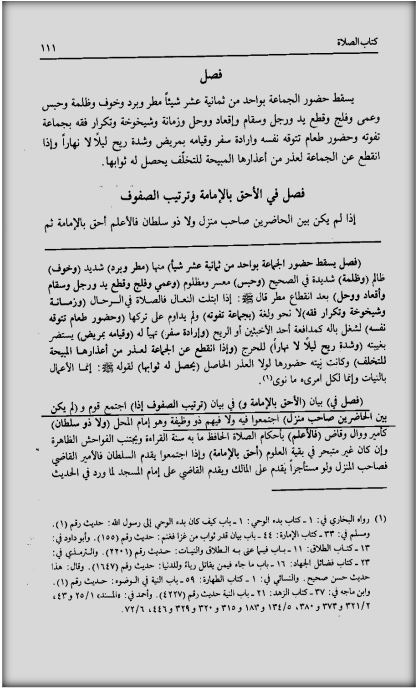 كتاب الصلاة
١١١
فصل
يسقط حضور الجماعة بواحد من ثمانية عشر شيئاً مطر وبرد وخوف وظلمة وحبس
وعمى وفلج وقطع يد ورجل وسقام وإقعاد ووحل وزمانة وشيخوخة وتكرار فقه بجماعة
تفوته وحضور طعام تتوقه نفسه وارادة سفر وقيامه بمريض وشدة ريح ليلاً لا نهاراً وإذا
انقطع عن الجماعة لعذر من أعذارها المبيحة للتخلّف يحصل له ثوابها.
فصل في الأحق بالإمامة وترتيب الصفوف
إذا لم يكن بين الحاضرين صاحب منزل ولا ذو سلطان فالأعلم أحق بالإمامة ثم
(فصل يسقط حضور الجماعة بواحد من ثمانية عشر شيأ) منها (مطر وبرد) شديد (وخوف)
ظالم (وظلمة) شديدة في الصحيح (وحبس) معسر ومظلوم (وعمي وفلج وقطع يد ورجل وسقام
وأقعاد ووحل) بعد انقطاع مطر قال ﷺ: إذا ابتلت النعال فالصلاة في الرحال (وزمانة
وشيخوخة وتكرار فقه) لا نحو ولغة (بجماعة تفوته) ولم يداوم على تركها (وحضور طعام تتوقه
نفسه) لشغل باله كمدافعة أحد الأخبثين أو الريح (وإرادة سفر) تهيأ له (وقيامه بمريض) يستضر
بغيبته (وشدة ريح ليلاً لا نهاراً) للحرج (وإذا انقطع عن الجماعة لعذر من أعذارهـا المبيحة
للتخلف) وكانت نيته حضورها لولا العذر الحاصل (يحصل له ثوابها) لقوله ﷺ: إنما الأعمال
بالنيات وإنما لكل امرىء ما نوى(١).
(فصل في) بيان (الأحق بالإمامة و) في بيان (ترتيب الصفوف إذا) اجتمع قوم و (لم يكن
بين الحاضرين صاحب منزل) اجتمعوا فيه ولا فيهم ذو وظيفة وهو إمام المحل (ولا ذو سلطان)
كأمير ووال وقاض (فالأعلم) بأحكام الصلاة الحافظ ما به سنة القراءة ويجتنب الفواحش الظاهرة
وإن كان غير متبحر في بقية العلوم (أحق بالإمامة) وإذا اجتمعوا يقدم السلطان فالأمير القاضي
فصاحب المنزل ولو مستأجراً يقدم على المالك ويقدم القاضي على إمام المسجد لما ورد في الحديث
(١) رواه البخاري في: ١ ـ كتاب بدء الوحي: ١ ـ باب كيف كان بدء الوحي إلى رسول الله: حديث رقم (١).
ومسلم في: ٣٣ ـ كتاب الإمارة: ٤٤ ـ باب بيان قدر ثواب من غزا فغنم: حديث رقم (١٥٥). وأبو داود في:
١٣ ـ كتاب الطلاق: ١١ ـ باب فيما عنى به الطلاق والنيات: حديث رقم (٢٢٠١). والترمذي في:
٢٣ ـ كتاب فضائل الجهاد: ١٦ ـ باب ما جاء فيمن يقاتل رياءً وللدنيا: حديث رقم (١٦٤٧). وقال: هذا
حديث حسن صحيح. والنسائي في: ١ ـ كتاب الطهارة: ٥٩ ـ باب النية في الوضوء: حديث رقم (١).
وابن ماجه في: ٣٧ ـ كتاب الزهد: ٢١ ـ باب النية حديث رقم (٤٢٢٧). وأحمد في: «المسند» ٢٥/١ و ٤٣،